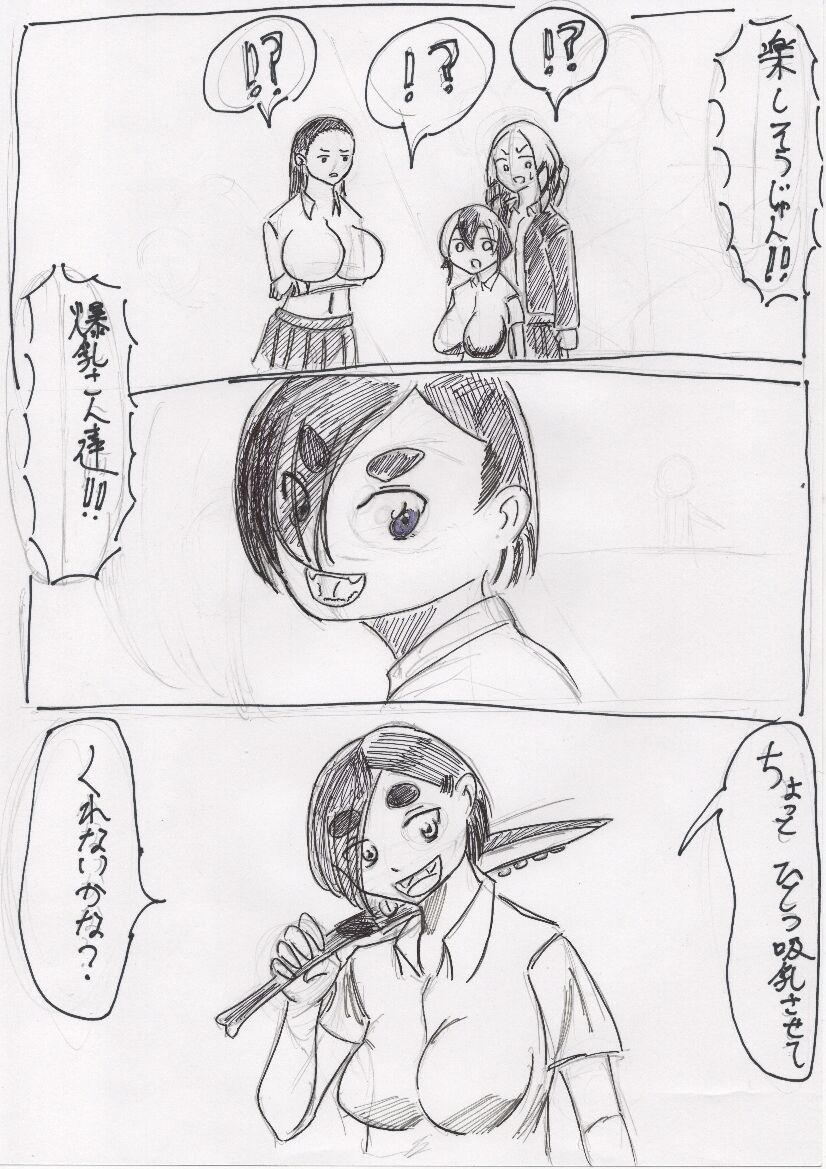 楽しそうじゃん!!
!?
!?
!?
爆乳さん達!!
ちょっと ひとつ吸乳させて
くれないかな?